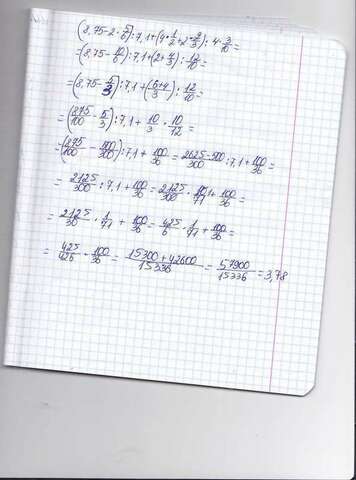 (8,75-2·5/6):7,1+(4·1/2+2·2/3):4·3/10=
=(8,75-10/6):7,1+(2+4/3):12/10=
=(8,75-5/3):7,1+(6+4/3):12/10=
=(875/100-5/3):7,1+10/3·10/12=
=(875/100-500/300):7,1+100/36=2625-500/300:7,1+100/36=
=2125/300:7,1+100/36=2125/300·10/71+100/36=
=2125/30·1/71+100/36=425/6·1/71+100/36=
=425/426+100/36=15300+42600/15336=57900/15336=3,78